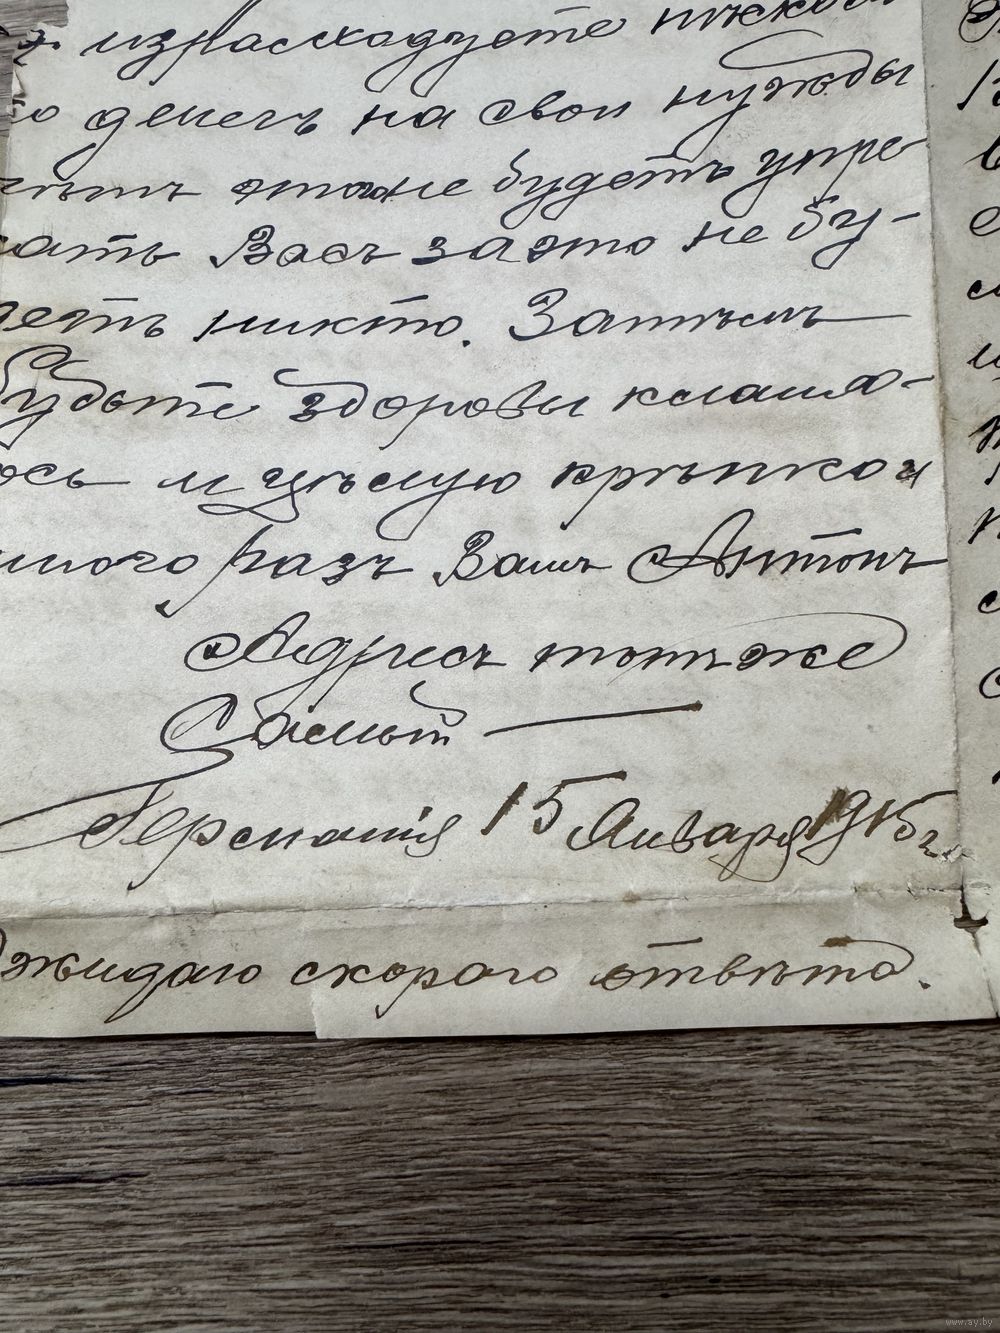 израсходуете нѣсколь
ко денегъ на свои нужды
не будетъ упре-
кать Васъ за это не бу-
детъ никто. Затѣмъ
будьте здоровы кланя-
юсь и цѣлую крѣпко и
много разъ Вашъ Антонъ
Адресъ тотъ же
Самый
Германія 15 Января 1915 г.
Ожидаю скораго отвѣта.
www.ay.by